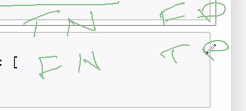 TN FP
= [ FN TP